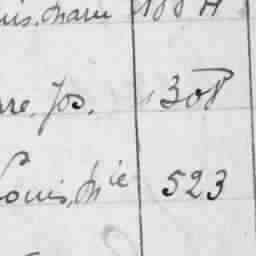 uis, Marie
rre, Jos. 308
Louis, Mie 523